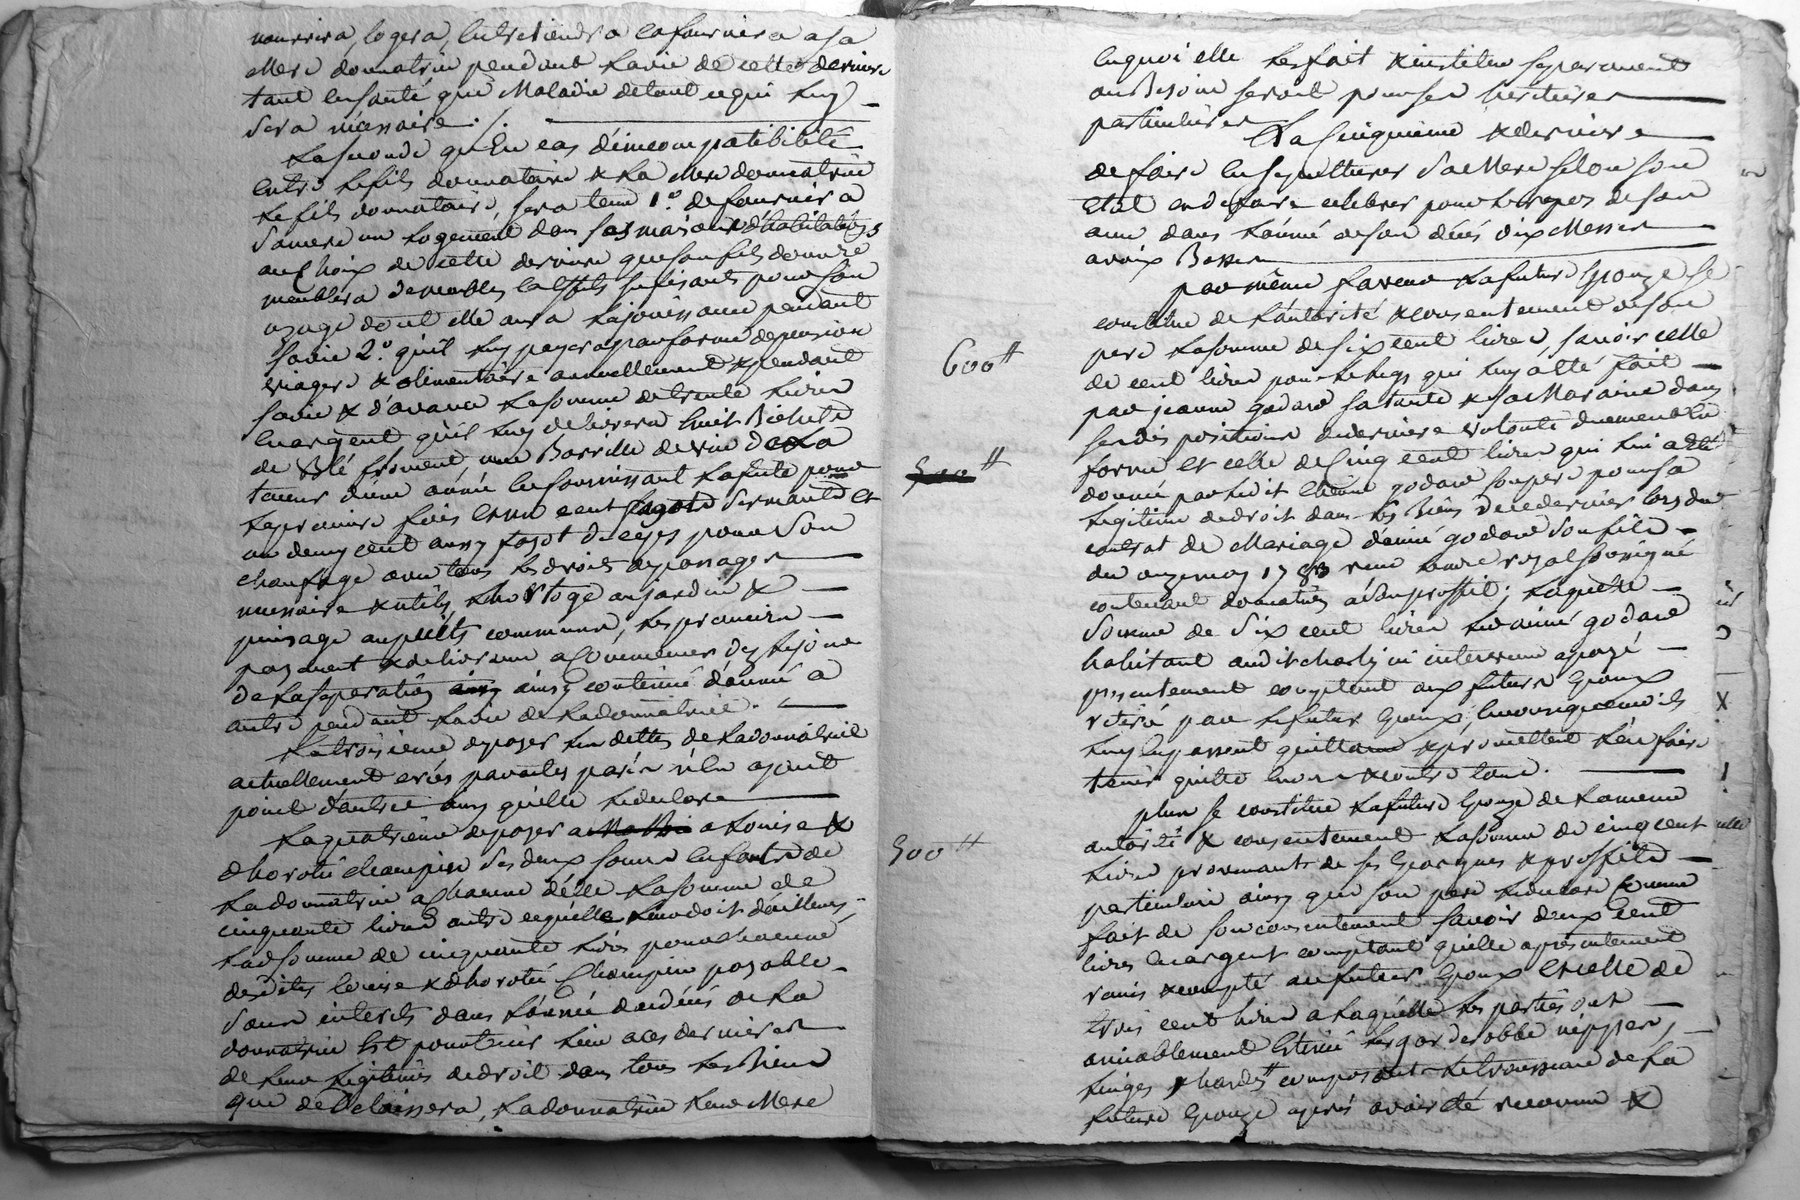 nourrira, logera, entretiendra et fournira a sa
Mere donnatrice pendant la vie de cette derniere
tant en santé que Maladie de tout ce qui luy
sera necessaire ./.
La seconde qu'En cas d'incompatibilité
entre le fils donnataire & la Mere donnatrice
le fils donnataire, sera tenu 1.º de fournir a
sa mere un logement dans ses maisons d'habitations
au Choix de cette derniere que son fils donnataire
meublera de meubles et Effets suffisants pour son
usage dont elle aura la jouissance pendant
sa vie 2.º qu'il luy payera par forme de pension
viagere & alimentaire annuellement & pendant
sa vie & d'avance la somme de trente livres
en argent qu'il luy delivrera huit Bichets
de Blé froment, une Barrille de vin de la
teneur d'une année en fournissant la futa pour
la premiere fois et un cent fagots serments et
un demy cent aussy fagot de ceps pour son
chaufage avec tous les droits de passages
necessaire & utils, au jardin &
puisage au puits commun, les premiers
payement & delivrance a commencer des le jour
de la separation ainsy continué d'année a
autre pendant la vie de la donnatrice.
La troisieme de payer les dettes de la donnatrice
actuellement crées par actes passés n'en ayant
point d'autres ainsy qu'elle le declare
La quatrième de payer a Louise &
dhorotée champin ses deux soeurs enfants de
la donnatrice a chacune d'elle la somme de
cinquante livres outre ce qu'elle leur doit d'ailleurs,
la de somme de cinquante livres pour chacune
desdites louise & dhorotée Champin payable
sans interets dans l'année du décès de la
donnatrice Est pour tenir lieu a ces dernieres
de leur legitimes de droit dans tous les Biens
que delaissera, la donnatrice leur Mere
en quoi elle les fait & institue séparement
au Besoin seront pour ses heritieres
particulières
La cinquième & derniere
de faire ensepulturer sa Mere selon son
etat et de faire celebrer pour le repos de son
ame dans l'année de son décès dix Messes
a voix Basse
par même faveur la future Epouze se
constitue de l'autorité & consentement de son
pere la somme de six cent livres, savoir celle
600 ₶
de cent livres pour le legs qui luy a été fait
par jeanne godard sa tante & sa Maraine dans
ses dispositions de derniere volonté duement en
forme et celle de Cinq cent livres qui lui a été
500 ₶
donnée par ledit Etienne godard son pere pour sa
legitime de droit dans les Biens de ce dernier lors du
contrat de Mariage d'aimé godard son fils
du onze may 1783 reçu notaire royal soussigné
contenant donnation a son proffit; laquelle
somme de six cent livres led aimé godard
habitant audit charly ici intervenu a payé
presentement comptant aux futurs Epoux
retiré par le futur Epoux, en conséquence ils
luy en passent quittance & promettent l'en faire
tenir quitte envers & contre tous.
plus se constitue la future Epouze de la meme
autorité & consentement la somme de cinq cent
500 ₶
livres provenants de ses Epargnes & proffits
particulier ainsy que son pere le declare comme
fait de son consentement savoir deux cent
livres en argent comptant qu'elle a présentement
remis & compté au futur Epoux et celle de
trois cent livres a laquelle les parties ont
amiablement Estimé les garderobbe nippes,
linges & hardes composants le trousseau de la
future Epouze après avoir été reconnu &